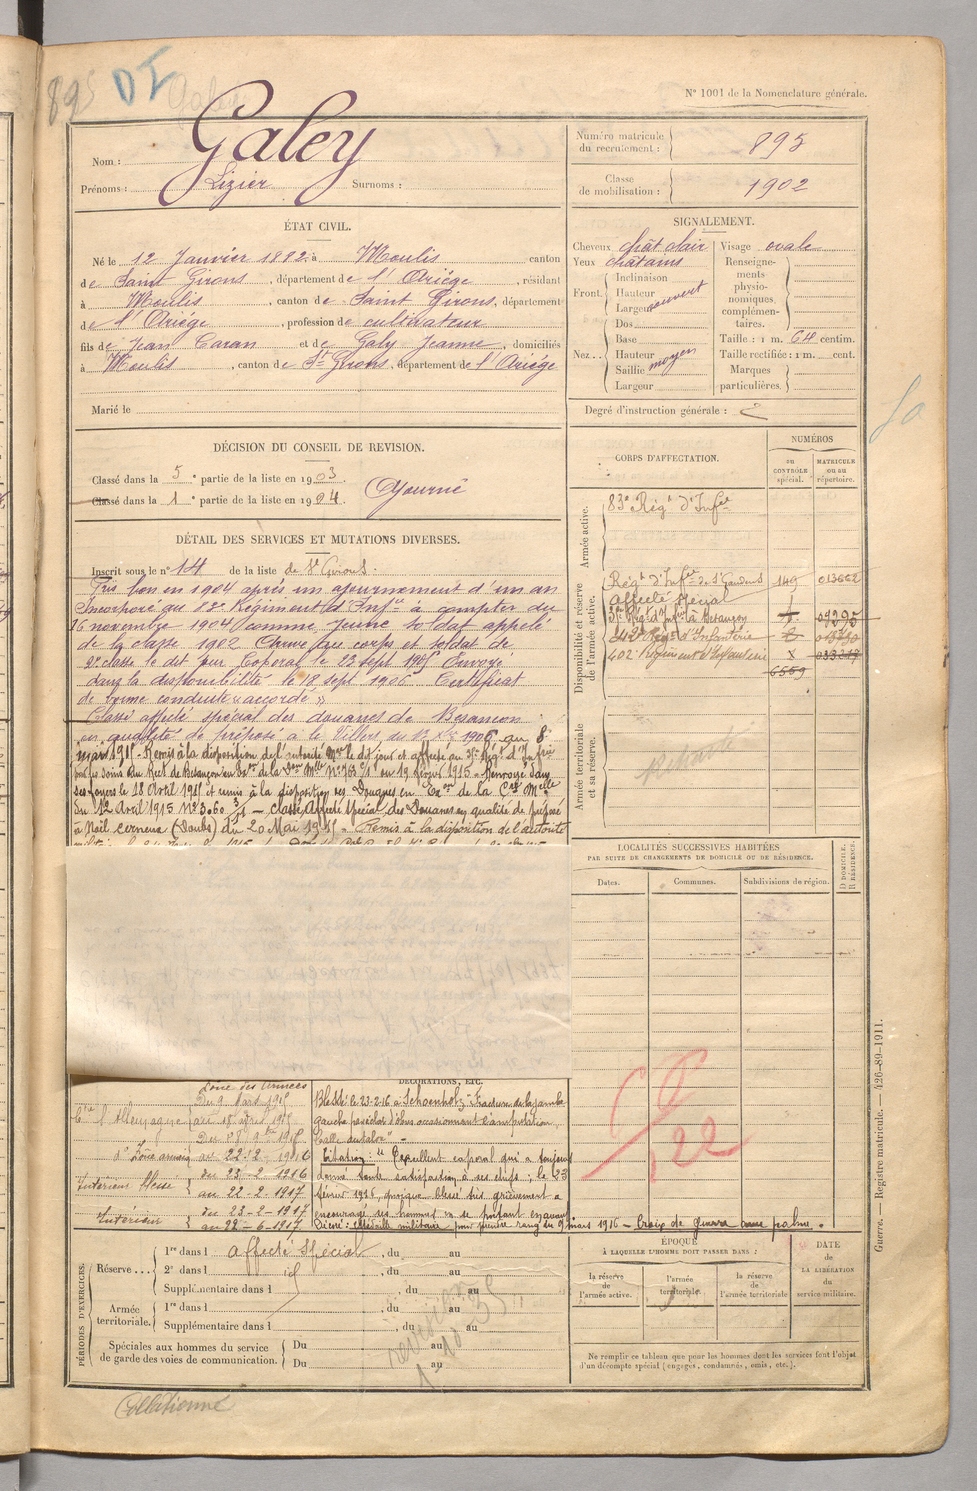 895
DI
N° 1001 de la Nomenclature générale.
Nom : Galey
Prénoms : Lizier Surnoms :
Numéro matricule du recrutement : 895
Classe de mobilisation : 1902
ÉTAT CIVIL.
Né le 12 Janvier 1882 à Moulis canton
de Saint Girons, département de l'Ariége, résidant
à Moulis, canton de Saint Girons, département
de l'Ariége, profession de cultivateur
fils de Jean Caran et de Galy Jeanne, domiciliés
à Moulis, canton de St Girons, département de l'Ariége
Marié le
SIGNALEMENT.
Cheveux chât clair Visage ovale
Yeux châtains Renseignements physionomiques complémentaires.
Front. Inclinaison
Hauteur
Largeur couvert
Nez... Dos
Base
Hauteur
Saillie moyen
Largeur
Taille : 1 m. 64 centim.
Taille rectifiée : 1 m. cent.
Marques particulières.
Degré d'instruction générale : 2
DÉCISION DU CONSEIL DE REVISION.
Classé dans la 5e partie de la liste en 1903
Classé dans la 1e partie de la liste en 1904
Ajourné
DÉTAIL DES SERVICES ET MUTATIONS DIVERSES.
Inscrit sous le n° 14 de la liste de St Girons.
Pris bon en 1904 après un ajournement d'un an
Incorporé au 83e Régiment d'Infie à compter du
16 novembre 1904 comme jeune soldat appelé
de la classe 1902 Arrivé au corps et soldat de
2e classe le dit jour Caporal le 23 sept 1905 Envoyé
dans la disponibilité le 18 sept 1906 Certificat
de bonne conduite "accordé"
Classé affecté spécial des douanes de Besançon
en qualité de préposé à le Villers du 1906 au 8
mars 1915. Remis à la disposition de l'autorité Mre le dit jour et affecté au Rég. d'Infie
19 février 1915. Renvoyé dans
ses foyers le 18 Avril 1915 et remis à la disposition des Douanes en Exon de la Cre Mlle
du 12 Avril 1915 N° 3.060 3/1 — classé Affecté Spécial des Douanes en qualité de préposé
à Noël Cerneux (Doubs) du 20 Mai 1915. Remis à la disposition de l'autorité
CORPS D'AFFECTATION.
NUMÉROS
au CONTRÔLE spécial.
MATRICULE ou au répertoire.
Armée active.
83e Régt d'Infie
Disponibilité et réserve de l'armée active.
Régt d'Infie de St Gaudens 149 013662
Affecté Spécial
Régt d'Infie à Besançon 09295
Régt d'Infanterie
402e Régiment d'Infanterie x
6559
Armée territoriale et sa réserve.
LOCALITÉS SUCCESSIVES HABITÉES
PAR SUITE DE CHANGEMENTS DE DOMICILE OU DE RÉSIDENCE.
Dates. Communes. Subdivisions de région.
D DOMICILE. R RÉSIDENCE.
Zone des Armées
Du 9 Mars 1915
Cgne c. l'Allemagne au 18 avril 1915
do Zone armées au 22-2-1916
Intérieur blessé du 23-2-1916
au 22-2-1917
Intérieur du 23-2-1917
au 22-6-1917
DÉCORATIONS, ETC.
Blessé le 23-2-16 à Schoenholz - Fracture de la jambe
gauche par éclat d'obus occasionnant l'amputation,
balle du talon" -
Citation : "Excellent caporal qui a toujours
donné toute satisfaction à ses chefs ; le 23
février 1916, quoique blessé très grièvement a
encouragé ses hommes en se portant en avant
Décoré : Médaille militaire pour prendre rang du 9 mars 1916 - Croix de guerre avec palme.
PÉRIODES D'EXERCICES.
Réserve... 1re dans l affecté spécial, du au
2e dans l, du au
Supplémentaire dans l, du au
Armée territoriale. 1re dans l, du au
Supplémentaire dans l, du au
Spéciales aux hommes du service de garde des voies de communication. Du au
Du au
ÉPOQUE
À LAQUELLE L'HOMME DOIT PASSER DANS :
la réserve de l'armée active.
l'armée territoriale.
la réserve de l'armée territoriale.
DATE de LA LIBÉRATION du service militaire.
Ne remplir ce tableau que pour les hommes dont les services font l'objet d'un décompte spécial (engagés, condamnés, omis, etc.).
Guerre. — Registre matricule. — 426-89-1911.
Collationné